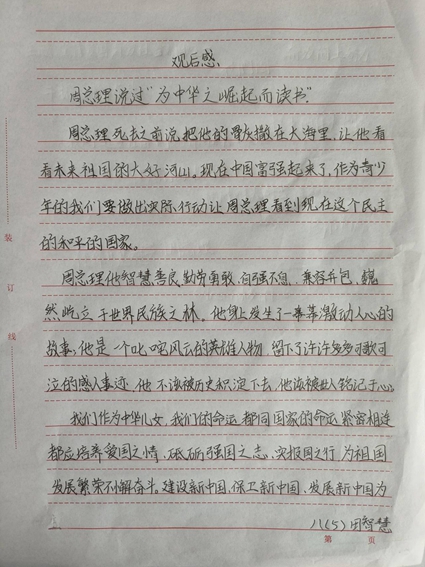 观后感、
周总理说过“为中华之崛起而读书”.
周总理死去之前说把他的骨灰撒在大海里,让他看
看未来祖国的大好河山。现在中国富强起来了,作为青少
年的我们要做出实际行动让周总理看到现在这个民主
的和平的国家。
周总理他智慧善良,勤劳勇敢,自强不息,兼容并包,巍
然屹立于世界民族之林。他身上发生了一幕幕激动人心的
故事,他是一个叱咤风云的英雄人物,留下了许许多多可歌可
泣的感人事迹,他不该被历史积淀下去,他该被世人铭记于心。
我们作为中华儿女,我们的命运都同国家的命运紧密相连
都应培养爱国之情,砥砺强国之志,实报国之行,为祖国
发展繁荣不懈奋斗。建设新中国,保卫新中国,发展新中国为
八(5)田智慧
装
订
线
第 页